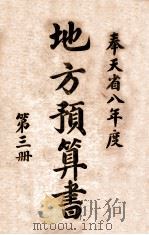 奉天省八年度
地方預算書
第三冊